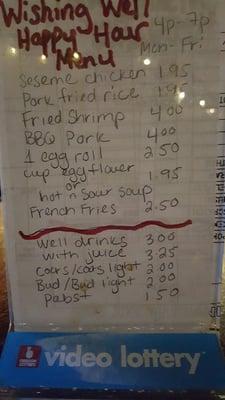 Wishing Well
Happy Hour 4p-7p
Menu Mon-Fri
Seseme chicken 1.95
Pork fried rice 1.95
Fried Shrimp 4.00
BBQ Pork 4.00
1 egg roll 2.50
cup egg flower
or 1.95
hot n Sour Soup
French Fries 2.50
Well drinks 3.00
with juice 3.25
Coors/Coors light 2.00
Bud/Bud light 2.00
Pabst 1.50
video lottery